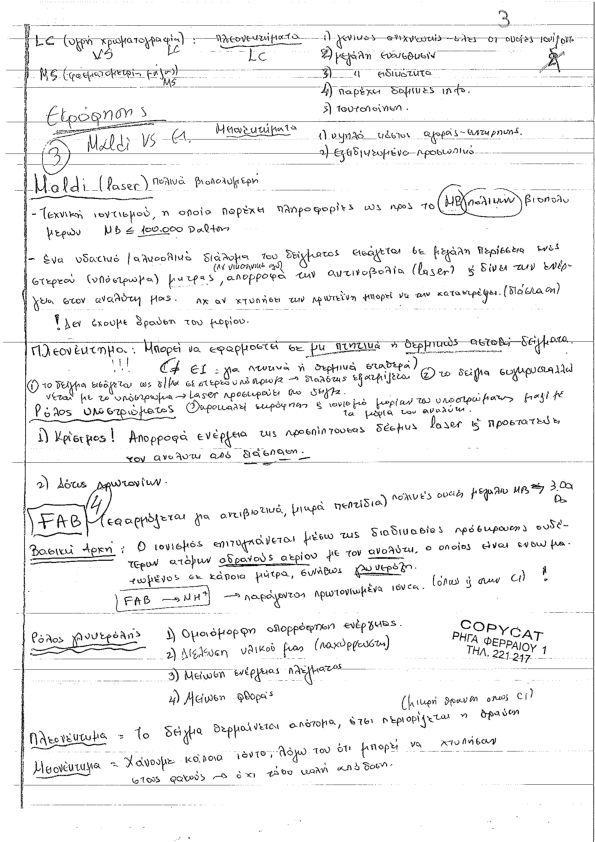 3
LC (υγρή χρωματογραφία) : Πλεονεκτήματα 1) γενικός ανιχνευτής - όλες οι ουσίες
VS LC LC 2) μεγάλη ευαισθησία
MS (φασματομετρία μάζας) 3) " ειδικότητα
MS 4) παρέχει δομικές info.
5) ταυτοποίηση.
Εκρόφησης
Μειονεκτήματα 1) υψηλό κόστος αγοράς - συντήρησης.
3 Maldi VS EI. 2) εξειδικευμένο προσωπικό
Maldi (laser) πολικά βιοπολυμερή
- Τεχνική ιοντισμού, η οποία παρέχει πληροφορίες ως προς το ΜΒ πολικών βιοπολυ
μερών ΜΒ ≤ 100.000 Dalton
- Ένα υδατικό / αλκοολικό διάλυμα του δείγματος εισάγεται σε μεγάλη περίσσεια ενός
στερεού (υπόστρωμα) μήτρας, απορροφά την ακτινοβολία (laser) & δίνει την ενέρ-
γεια στον αναλύτη μας. πχ αν χτυπήσει την πρωτεΐνη μπορεί να την καταστρέψει. (διάσπαση)
! Δεν έχουμε θραύση του μορίου.
Πλεονέκτημα : Μπορεί να εφαρμοστεί σε μη πτητικά ή θερμικώς ασταθή δείγματα.
!!! (≠ EI : για πτητικά ή θερμικά σταθερά)
① το δείγμα εισάγεται ως δ/μα σε στερεό υπόστρωμα → διαλύτης εξατμίζεται ② το δείγμα συγκρυσταλλώ
νεται με το υπόστρωμα → laser προσκρούει στο δείγμα.
Ρόλος υποστρώματος ③ προκαλεί εκρόφηση & ιονισμό μορίων του υποστρώματος μαζί με
τα μόρια του αναλύτη.
1) Κρίσιμος! Απορροφά ενέργεια της προσπίπτουσας δέσμης laser & προστατεύει
τον αναλύτη από διάσπαση.
2) Δότης πρωτονίων.
4
FAB (εφαρμόζεται για αντιβιοτικά, μικρά πεπτίδια) πολικές ουσίες μεγάλου ΜΒ → 3.000
Da
Βασική Αρχή : Ο ιονισμός επιτυγχάνεται μέσω της διαδικασίας πρόσκρουσης ουδέ-
τερων ατόμων αδρανούς αερίου με τον αναλύτη, ο οποίος είναι ενσωμα-
τωμένος σε κάποια μήτρα, συνήθως γλυκερόλη.
FAB → MH⁺ → παράγονται πρωτονιωμένα ιόντα. (όπως & στην CI) !
Ρόλος γλυκερόλης 1) Ομοιόμορφη απορρόφηση ενέργειας.
2) Διέλευση υλικού μας (παχύρρευστη)
3) Μείωση ενέργειας πλέγματος
4) Μείωση φθοράς
COPYCAT
ΡΗΓΑ ΦΕΡΡΑΙΟΥ 1
ΤΗΛ. 221.217
(μικρή θραύση όπως CI)
Πλεονέκτημα = Το δείγμα θερμαίνεται απότομα, έτσι περιορίζεται η θραύση
Μειονέκτημα = Χάνουμε κάποια ιόντα, λόγω του ότι μπορεί να χτυπήσαν
στους φακούς → όχι τόσο καλή απόδοση.